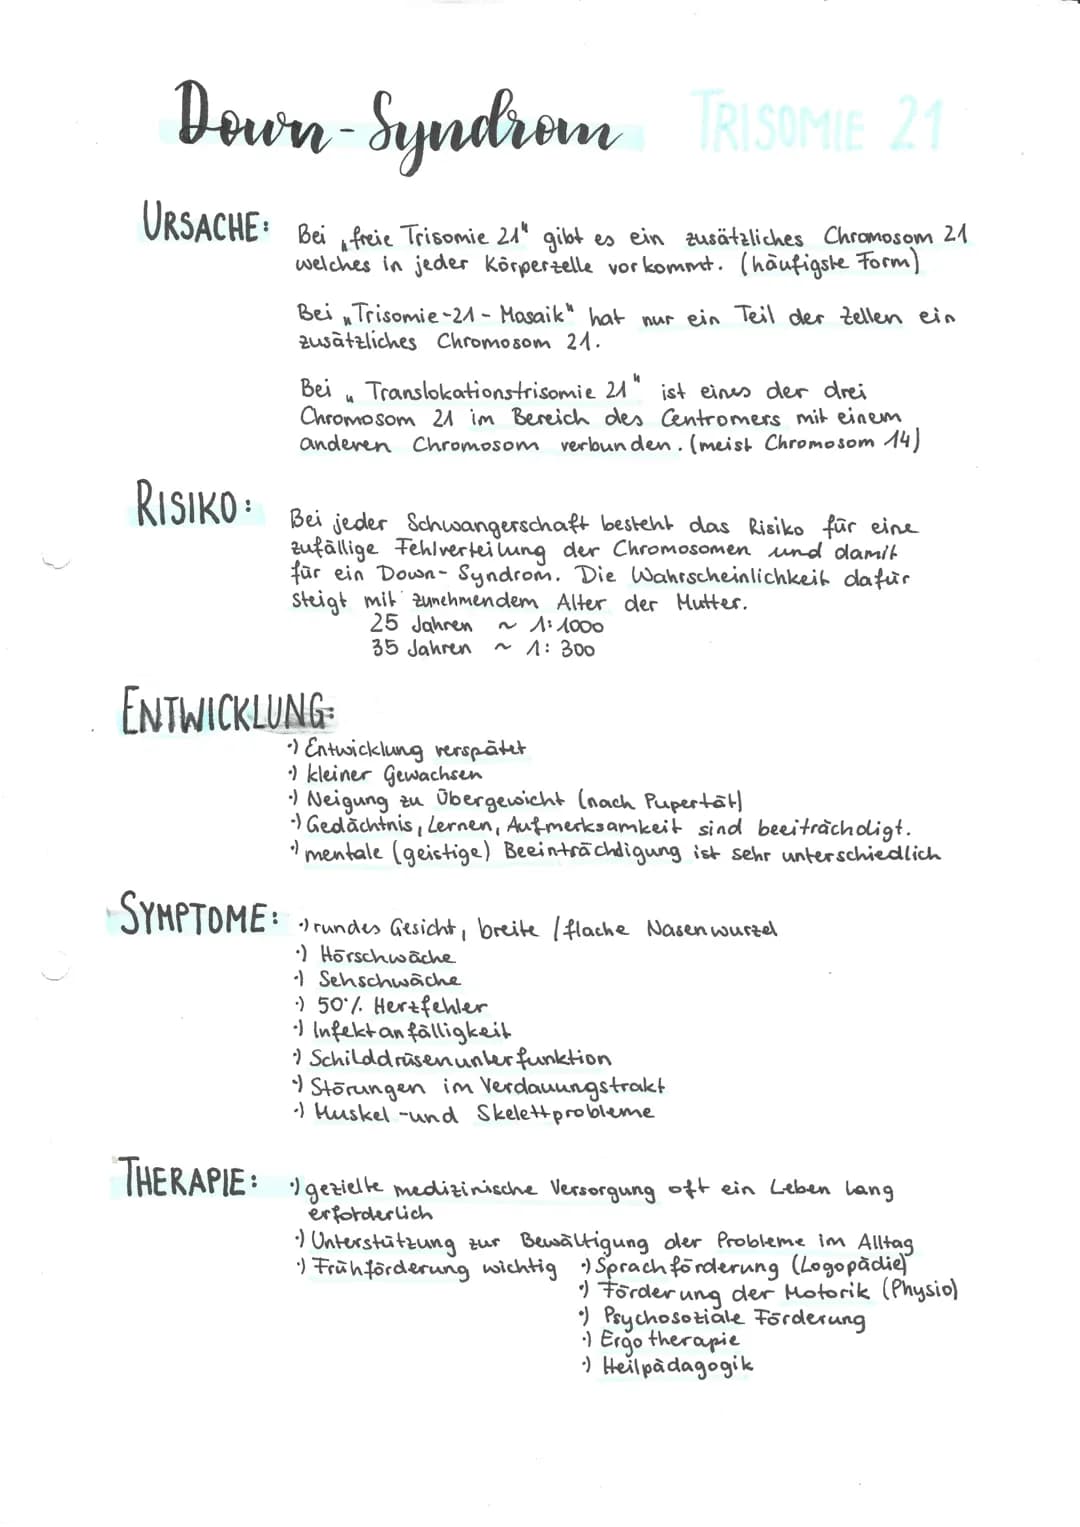 Down-Syndrom TRISOMIE 21
URSACHE: Bei „freie Trisomie 21" gibt es ein zusätzliches Chromosom 21
welches in jeder Körperzelle vorkommt. (häufigste Form)
Bei „Trisomie-21-Mosaik" hat nur ein Teil der Zellen ein
zusätzliches Chromosom 21.
Bei „Translokationstrisomie 21" ist eines der drei
Chromosom 21 im Bereich des Centromers mit einem
anderen Chromosom verbunden. (meist Chromosom 14)
RISIKO: Bei jeder Schwangerschaft besteht das Risiko für eine
zufällige Fehlverteilung der Chromosomen und damit
für ein Down-Syndrom. Die Wahrscheinlichkeit dafür
steigt mit zunehmendem Alter der Mutter.
25 Jahren ~ 1:1000
35 Jahren ~ 1:300
ENTWICKLUNG:
·) Entwicklung verspätet
·) kleiner Gewachsen
·) Neigung zu Übergewicht (nach Pupertät)
·) Gedächtnis, Lernen, Aufmerksamkeit sind beeiträchdigt.
·) mentale (geistige) Beeinträchdigung ist sehr unterschiedlich
SYMPTOME: ·) rundes Gesicht, breite / flache Nasenwurzel
·) Hörschwäche
·) Sehschwäche
·) 50% Herzfehler
·) Infektanfälligkeit
·) Schilddrüsenunterfunktion
·) Störungen im Verdauungstrakt
·) Muskel-und Skelettprobleme
THERAPIE: ·) gezielte medizinische Versorgung oft ein Leben lang
erforderlich
·) Unterstützung zur Bewältigung der Probleme im Alltag
·) Frühförderung wichtig ·) Sprachförderung (Logopädie)
·) Förderung der Motorik (Physio)
·) Psychosoziale Förderung
·) Ergotherapie
·) Heilpädagogik